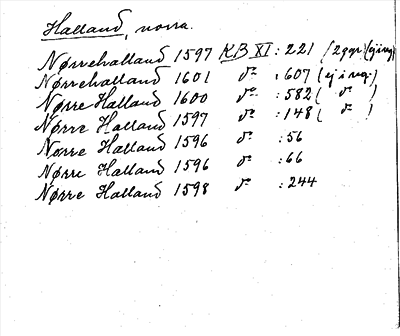 Halland, norra.
Nørrehalland 1597 KB XI : 221 (2 ggr) (ej i reg)
Nørrehalland 1601 d:o : 607 (ej i reg.)
Nørre Halland 1600 d:o : 582 ( d:o )
Nørre Halland 1597 d:o : 148 ( d:o )
Nørre Halland 1596 d:o : 56
Nørre Halland 1596 d:o : 66
Nørre Halland 1598 d:o : 244